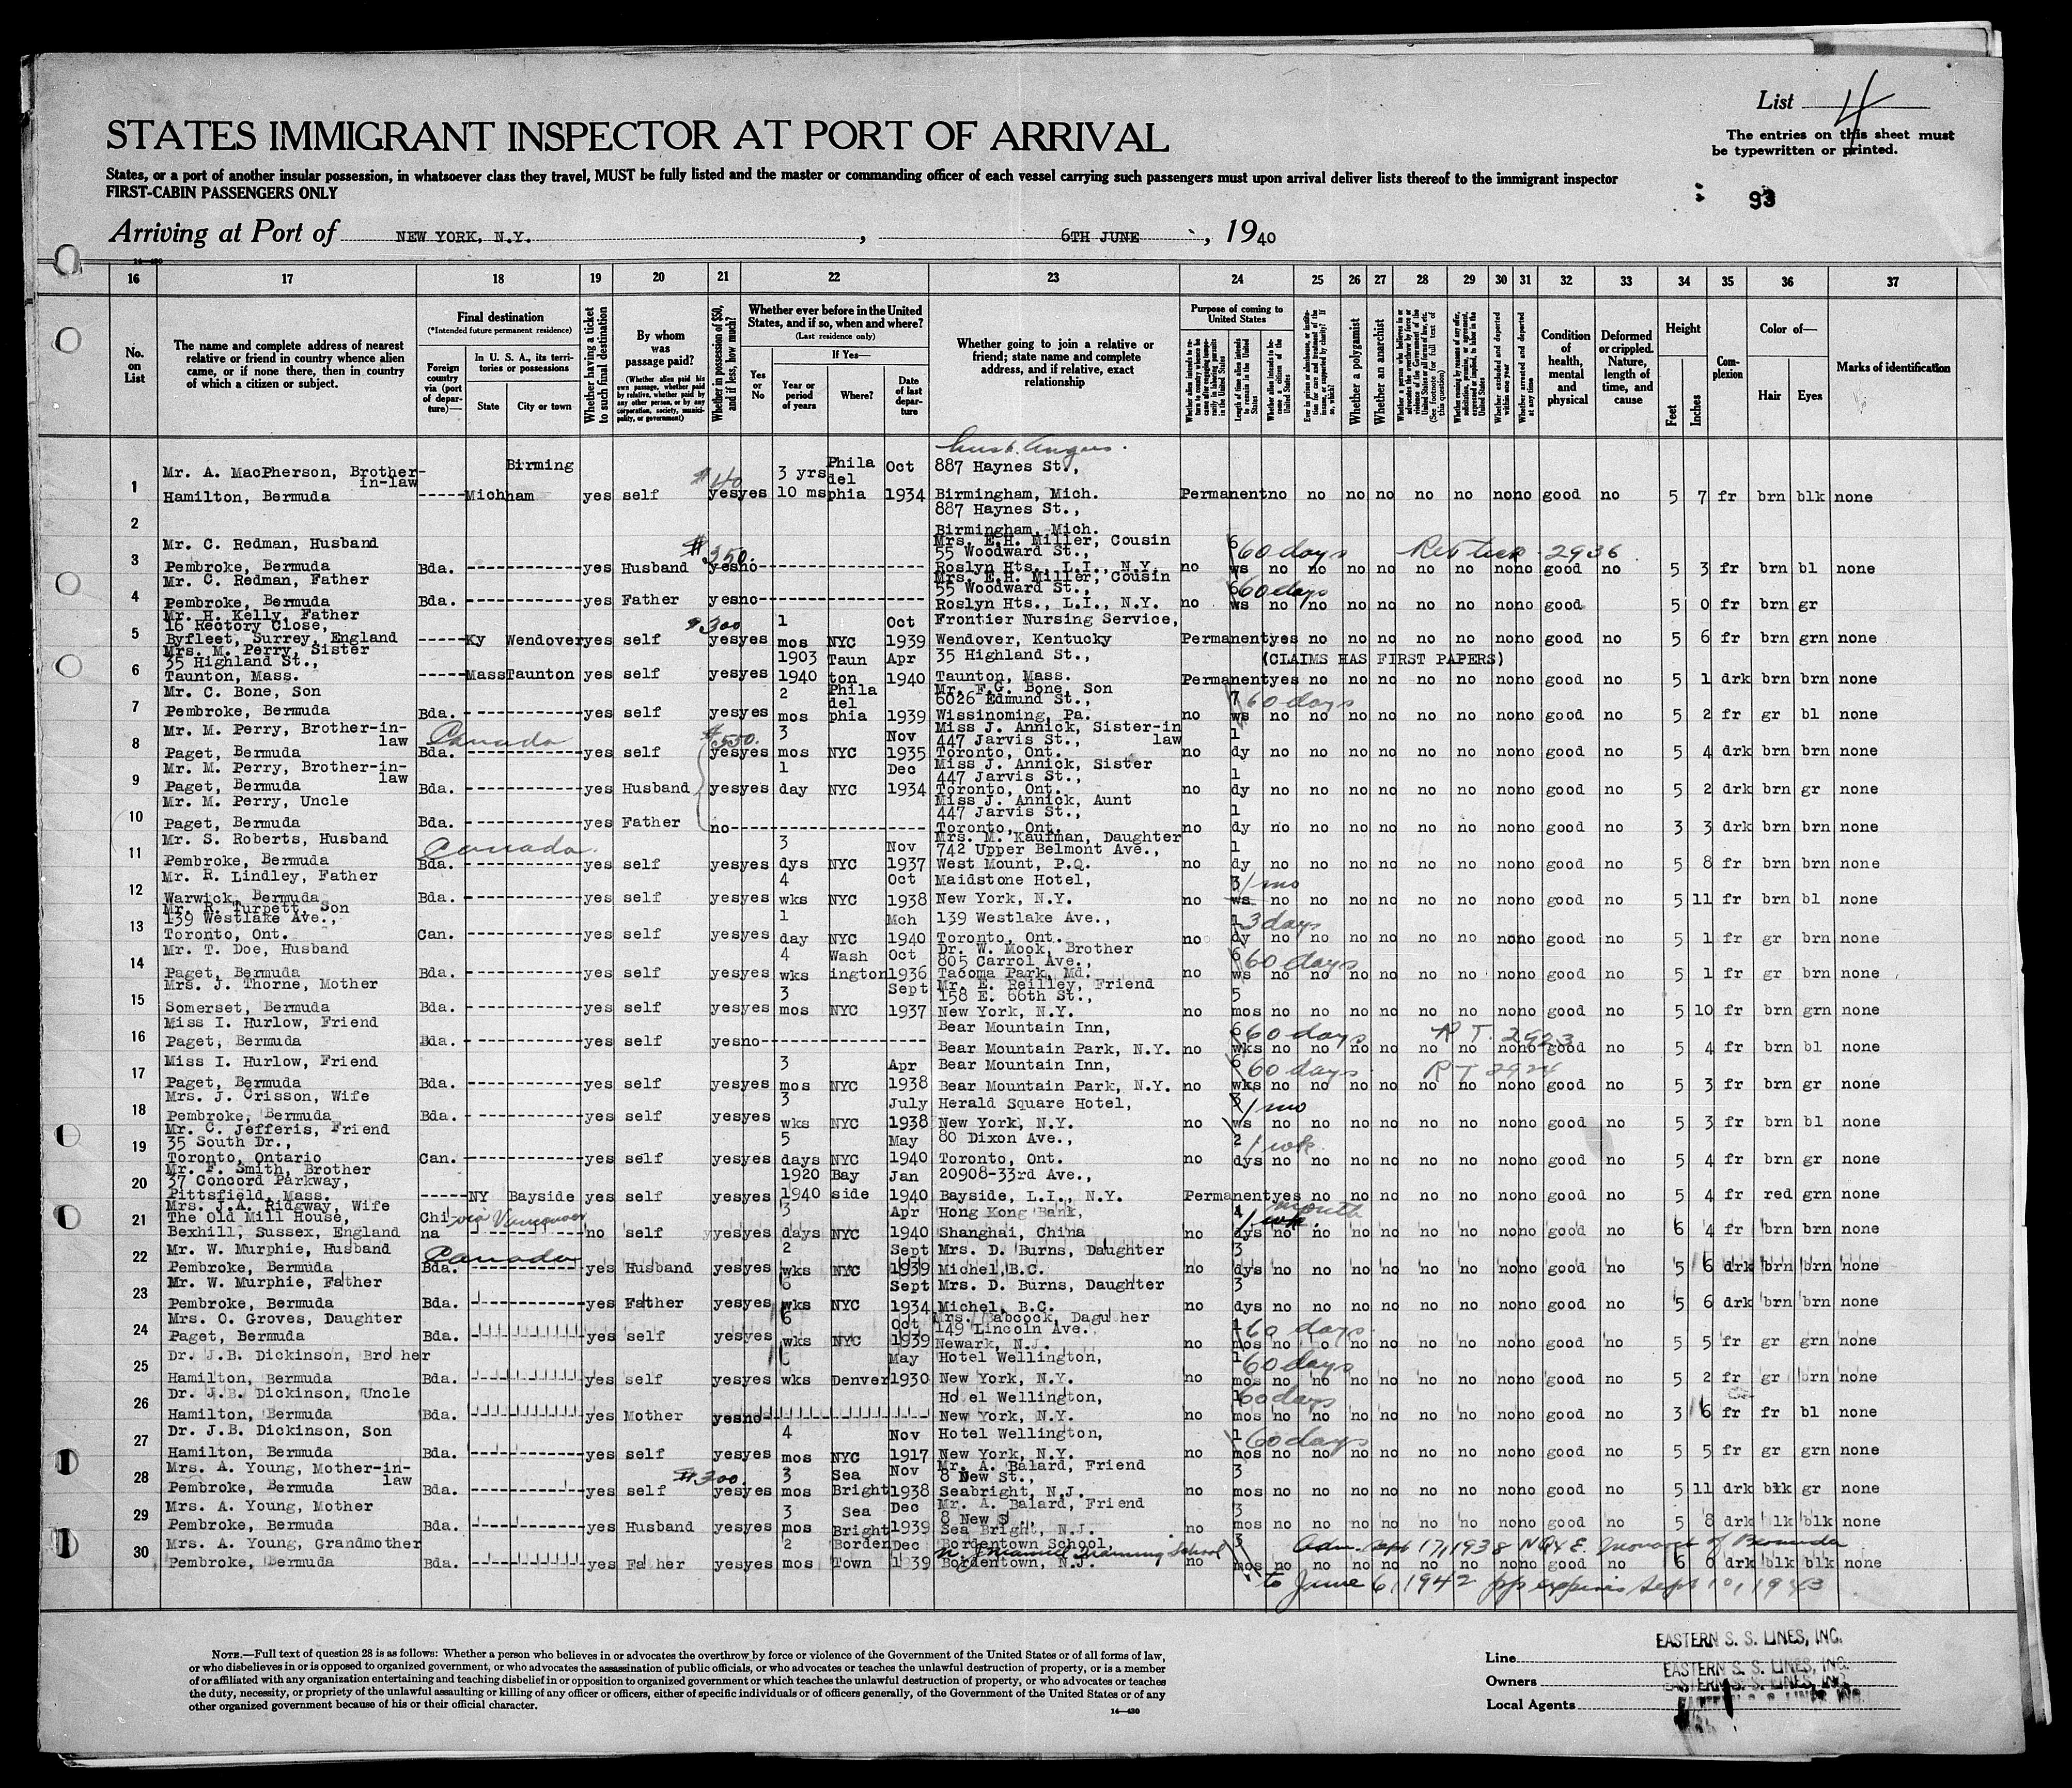 List 4
STATES IMMIGRANT INSPECTOR AT PORT OF ARRIVAL
The entries on this sheet must
be typewritten or printed.
States, or a port of another insular possession, in whatsoever class they travel, MUST be fully listed and the master or commanding officer of each vessel carrying such passengers must upon arrival deliver lists thereof to the immigrant inspector
FIRST-CABIN PASSENGERS ONLY
93
Arriving at Port of NEW YORK, N.Y. , 6TH JUNE , 1940
14—430
16 17 18 19 20 21 22 23 24 25 26 27 28 29 30 31 32 33 34 35 36 37
No. on List
The name and complete address of nearest relative or friend in country whence alien came, or if none there, then in country of which a citizen or subject.
Final destination
(*Intended future permanent residence)
Foreign country via (port of departure)—
In U. S. A., its territories or possessions
State
City or town
Whether having a ticket to such final destination
By whom was passage paid?
(Whether alien paid his own passage, whether paid by relative, whether paid by any other person, or by any corporation, society, municipality, or government)
Whether in possession of $50, and if less, how much?
Whether ever before in the United States, and if so, when and where?
(Last residence only)
Yes or No
If Yes—
Year or period of years
Where?
Date of last departure
Whether going to join a relative or friend; state name and complete address, and if relative, exact relationship
Purpose of coming to United States
Length of time alien intends to remain in the United States
Whether alien intends to become a citizen of the United States
Whether a polygamist
Whether an anarchist
Whether excluded and deported within one year
Whether arrested and deported at any time
Condition of health, mental and physical
Deformed or crippled. Nature, length of time, and cause
Height
Feet
Inches
Complexion
Color of—
Hair
Eyes
Marks of identification
1 Mr. A. MacPherson, Brother-in-law Hamilton, Bermuda ----- Mich Birmingham yes self $40 yes yes 3 yrs 10 ms Philadelphia Oct 1934 887 Haynes St., Birmingham, Mich. Permanent no no no no no no no no good no 5 7 fr brn blk none
2 887 Haynes St., Birmingham, Mich.
3 Mr. C. Redman, Husband Pembroke, Bermuda Bda. ----- yes Husband $350. yes no ----- Mrs. E.H. Miller, Cousin 55 Woodward St., Roslyn Hts., L.I., N.Y. no 6 ws 60 days no no no no no no no no good no 2936 5 3 fr brn bl none
4 Mr. C. Redman, Father Pembroke, Bermuda Bda. ----- yes Father yes no ----- Mrs. E.H. Miller, Cousin 55 Woodward St., Roslyn Hts., L.I., N.Y. no 6 ws 60 days no no no no no no no no good 5 0 fr brn gr
5 Mr. H. Kelly, Father 16 Rectory Close, Byfleet, Surrey, England ----- Ky Wendover yes self $300 yes yes 1 mos NYC Oct 1939 Frontier Nursing Service, Wendover, Kentucky Permanent yes no no no no no no no good no 5 6 fr brn grn none
6 Mrs. M. Perry, Sister 35 Highland St., Taunton, Mass. ----- Mass Taunton yes self yes yes 1903 1940 Taunton Apr 1940 35 Highland St., Taunton, Mass. (CLAIMS HAS FIRST PAPERS) Permanent yes no no no no no no no good no 5 1 drk brn brn none
7 Mr. C. Bone, Son Pembroke, Bermuda Bda. ----- yes self yes yes 2 mos Philadelphia 1939 Mr. F.G. Bone, Son 6026 Edmund St., Wissinoming, Pa. no 7 ws 60 days no no no no no no no no good no 5 2 fr gr bl none
8 Mr. M. Perry, Brother-in-law Paget, Bermuda Canada Bda. ----- yes self $550. yes yes 3 mos NYC Nov 1935 Miss J. Annick, Sister-in law 447 Jarvis St., Toronto, Ont. no 1 dy no no no no no no no no good no 5 4 drk brn brn none
9 Mr. M. Perry, Brother-in-law Paget, Bermuda Bda. ----- yes Husband yes yes 1 day NYC Dec 1934 Miss J. Annick, Sister 447 Jarvis St., Toronto, Ont. no 1 dy no no no no no no no no good no 5 2 drk brn gr none
10 Mr. M. Perry, Uncle Paget, Bermuda Bda. ----- yes Father no ----- Miss J. Annick, Aunt 447 Jarvis St., Toronto, Ont. no 1 dy no no no no no no no no good no 3 3 drk brn brn none
11 Mr. S. Roberts, Husband Pembroke, Bermuda Canada. Bda. ----- yes self yes yes 3 dys NYC Nov 1937 Mrs. M. Kaufman, Daughter 742 Upper Belmont Ave., West Mount, P.Q. no 1 dy no no no no no no no no good no 5 8 fr brn brn none
12 Mr. R. Lindley, Father Warwick, Bermuda Bda. ----- yes self yes yes 4 wks NYC Oct 1938 Maidstone Hotel, New York, N.Y. no 3 ws 1 mo no no no no no no no no good no 5 11 fr brn bl none
13 Mr. R. Turpett, Son 139 Westlake Ave., Toronto, Ont. Can. ----- yes self yes yes 1 day NYC Mch 1940 139 Westlake Ave., Toronto, Ont. no 1 dy 3 days no no no no no no no no good no 5 1 fr gr brn none
14 Mr. T. Doe, Husband Paget, Bermuda Bda. ----- yes self yes yes 4 wks Washington Oct 1936 Dr. W. Mook, Brother 805 Carrol Ave., Tacoma Park, Md. no 6 ws 60 days no no no no no no no no good no 5 1 fr gr brn none
15 Mrs. J. Thorne, Mother Somerset, Bermuda Bda. ----- yes self yes yes 3 mos NYC Sept 1937 Mr. E. Reilley, Friend 158 E. 66th St., New York, N.Y. no 5 mos no no no no no no no no good no 5 10 fr brn grn none
16 Miss I. Hurlow, Friend Paget, Bermuda Bda. ----- yes self yes no ----- Bear Mountain Inn, Bear Mountain Park, N.Y. no 6 wks 60 days no no no no no no no no R T. 2923 good no 5 4 fr brn bl none
17 Miss I. Hurlow, Friend Paget, Bermuda Bda. ----- yes self yes yes 3 mos NYC Apr 1938 Bear Mountain Inn, Bear Mountain Park, N.Y. no 6 wks 60 days no no no no no no no no R T 2924 good no 5 3 fr brn gr none
18 Mrs. J. Crisson, Wife Pembroke, Bermuda Bda. ----- yes self yes yes 3 wks NYC July 1938 Herald Square Hotel, New York, N.Y. no 3 ws 1 mo no no no no no no no no good no 5 3 fr brn bl none
19 Mr. C. Jefferis, Friend 35 South Dr., Toronto, Ontario Can. ----- yes self yes yes 5 days NYC May 1940 80 Dixon Ave., Toronto, Ont. no 2 dys 1 wk. no no no no no no no no good no 5 4 fr brn gr none
20 Mr. F. Smith, Brother 37 Concord Parkway, Pittsfield, Mass. ----- NY Bayside yes self yes yes 1920 1940 Bayside Jan 1940 20908-33rd Ave., Bayside, L.I., N.Y. Permanent yes no no no no no no no good no 5 4 fr red grn none
21 Mrs. J.A. Ridgway, Wife The Old Mill House, Bexhill, Sussex, England China via Vancouver ----- no self yes yes 3 days NYC Apr 1940 Hong Kong Bank, Shanghai, China no 4 dys 1 wk. month no no no no no no no no good no 6 4 fr brn brn none
22 Mr. W. Murphie, Husband Pembroke, Bermuda Canada Bda. ----- yes Husband yes yes 2 wks NYC Sept 1939 Mrs. D. Burns, Daughter Michel, B.C. no 3 dys no no no no no no no no good no 5 6 drk brn brn none
23 Mr. W. Murphie, Father Pembroke, Bermuda Bda. ----- yes Father yes yes 6 wks NYC Sept 1934 Mrs. D. Burns, Daughter Michel, B.C. no 3 dys no no no no no no no no good no 5 6 drk brn brn none
24 Mrs. O. Groves, Daughter Paget, Bermuda Bda. ----- yes self yes yes 6 wks NYC Oct 1939 Mrs. Babcock, Daguther 149 Lincoln Ave. Newark, N.J. no 1 mos 60 days no no no no no no no no good no 5 5 fr gr grn none
25 Dr. J.B. Dickinson, Brother Hamilton, Bermuda Bda. ----- yes self yes yes 6 wks Denver May 1930 Hotel Wellington, New York, N.Y. no 1 mos 60 days no no no no no no no no good no 5 2 fr gr brn none
26 Dr. J.B. Dickinson, Uncle Hamilton, Bermuda Bda. ----- yes Mother yes no ----- Hotel Wellington, New York, N.Y. no 1 mos 60 days no no no no no no no no good no 3 6 fr fr bl none
27 Dr. J.B. Dickinson, Son Hamilton, Bermuda Bda. ----- yes self yes yes 4 mos NYC Nov 1917 Hotel Wellington, New York, N.Y. no 1 mos 60 days no no no no no no no no good no 5 5 fr gr grn none
28 Mrs. A. Young, Mother-in-law Pembroke, Bermuda Bda. ----- yes self $300. yes yes 3 mos Sea Bright Nov 1938 Mr. A. Balard, Friend 8 New St., Seabright, N.J. no 3 mos no no no no no no no no good no 5 11 drk blk gr none
29 Mrs. A. Young, Mother Pembroke, Bermuda Bda. ----- yes Husband yes yes 3 mos Sea Bright Dec 1939 Mr. A. Balard, Friend 8 New S Sea Bright, N.J. no 3 mos no no no no no no no no good no 5 8 drk blk blk none
30 Mrs. A. Young, Grandmother Pembroke, Bermuda Bda. ----- yes Father yes yes 2 mos Borden Town Dec 1939 Bordentown School, N.J. Manual Training School Bordentown, N.J. no 3 mos no no no no no no no no good no 6 0 drk blk blk none
Adm. Sept 17, 1938 of Bermuda
to June 6, 1942 pp expires Sept 10, 1943
NOTE.—Full text of question 28 is as follows: Whether a person who believes in or advocates the overthrow by force or violence of the Government of the United States or of all forms of law,
or who disbelieves in or is opposed to organized government, or who advocates the assassination of public officials, or who advocates or teaches the unlawful destruction of property, or is a member
of or affiliated with any organization entertaining and teaching disbelief in or opposition to organized government or which teaches the unlawful destruction of property, or who advocates or teaches
the duty, necessity, or propriety of the unlawful assaulting or killing of any officer or officers, either of specific individuals or of officers generally, of the Government of the United States or of any
other organized government because of his or their official character.
14—430
Line EASTERN S. S. LINES, INC.
Owners EASTERN S. S. LINES, INC.
EASTERN S. S. LINES, INC.
Local Agents EASTERN S. S. LINES, INC.